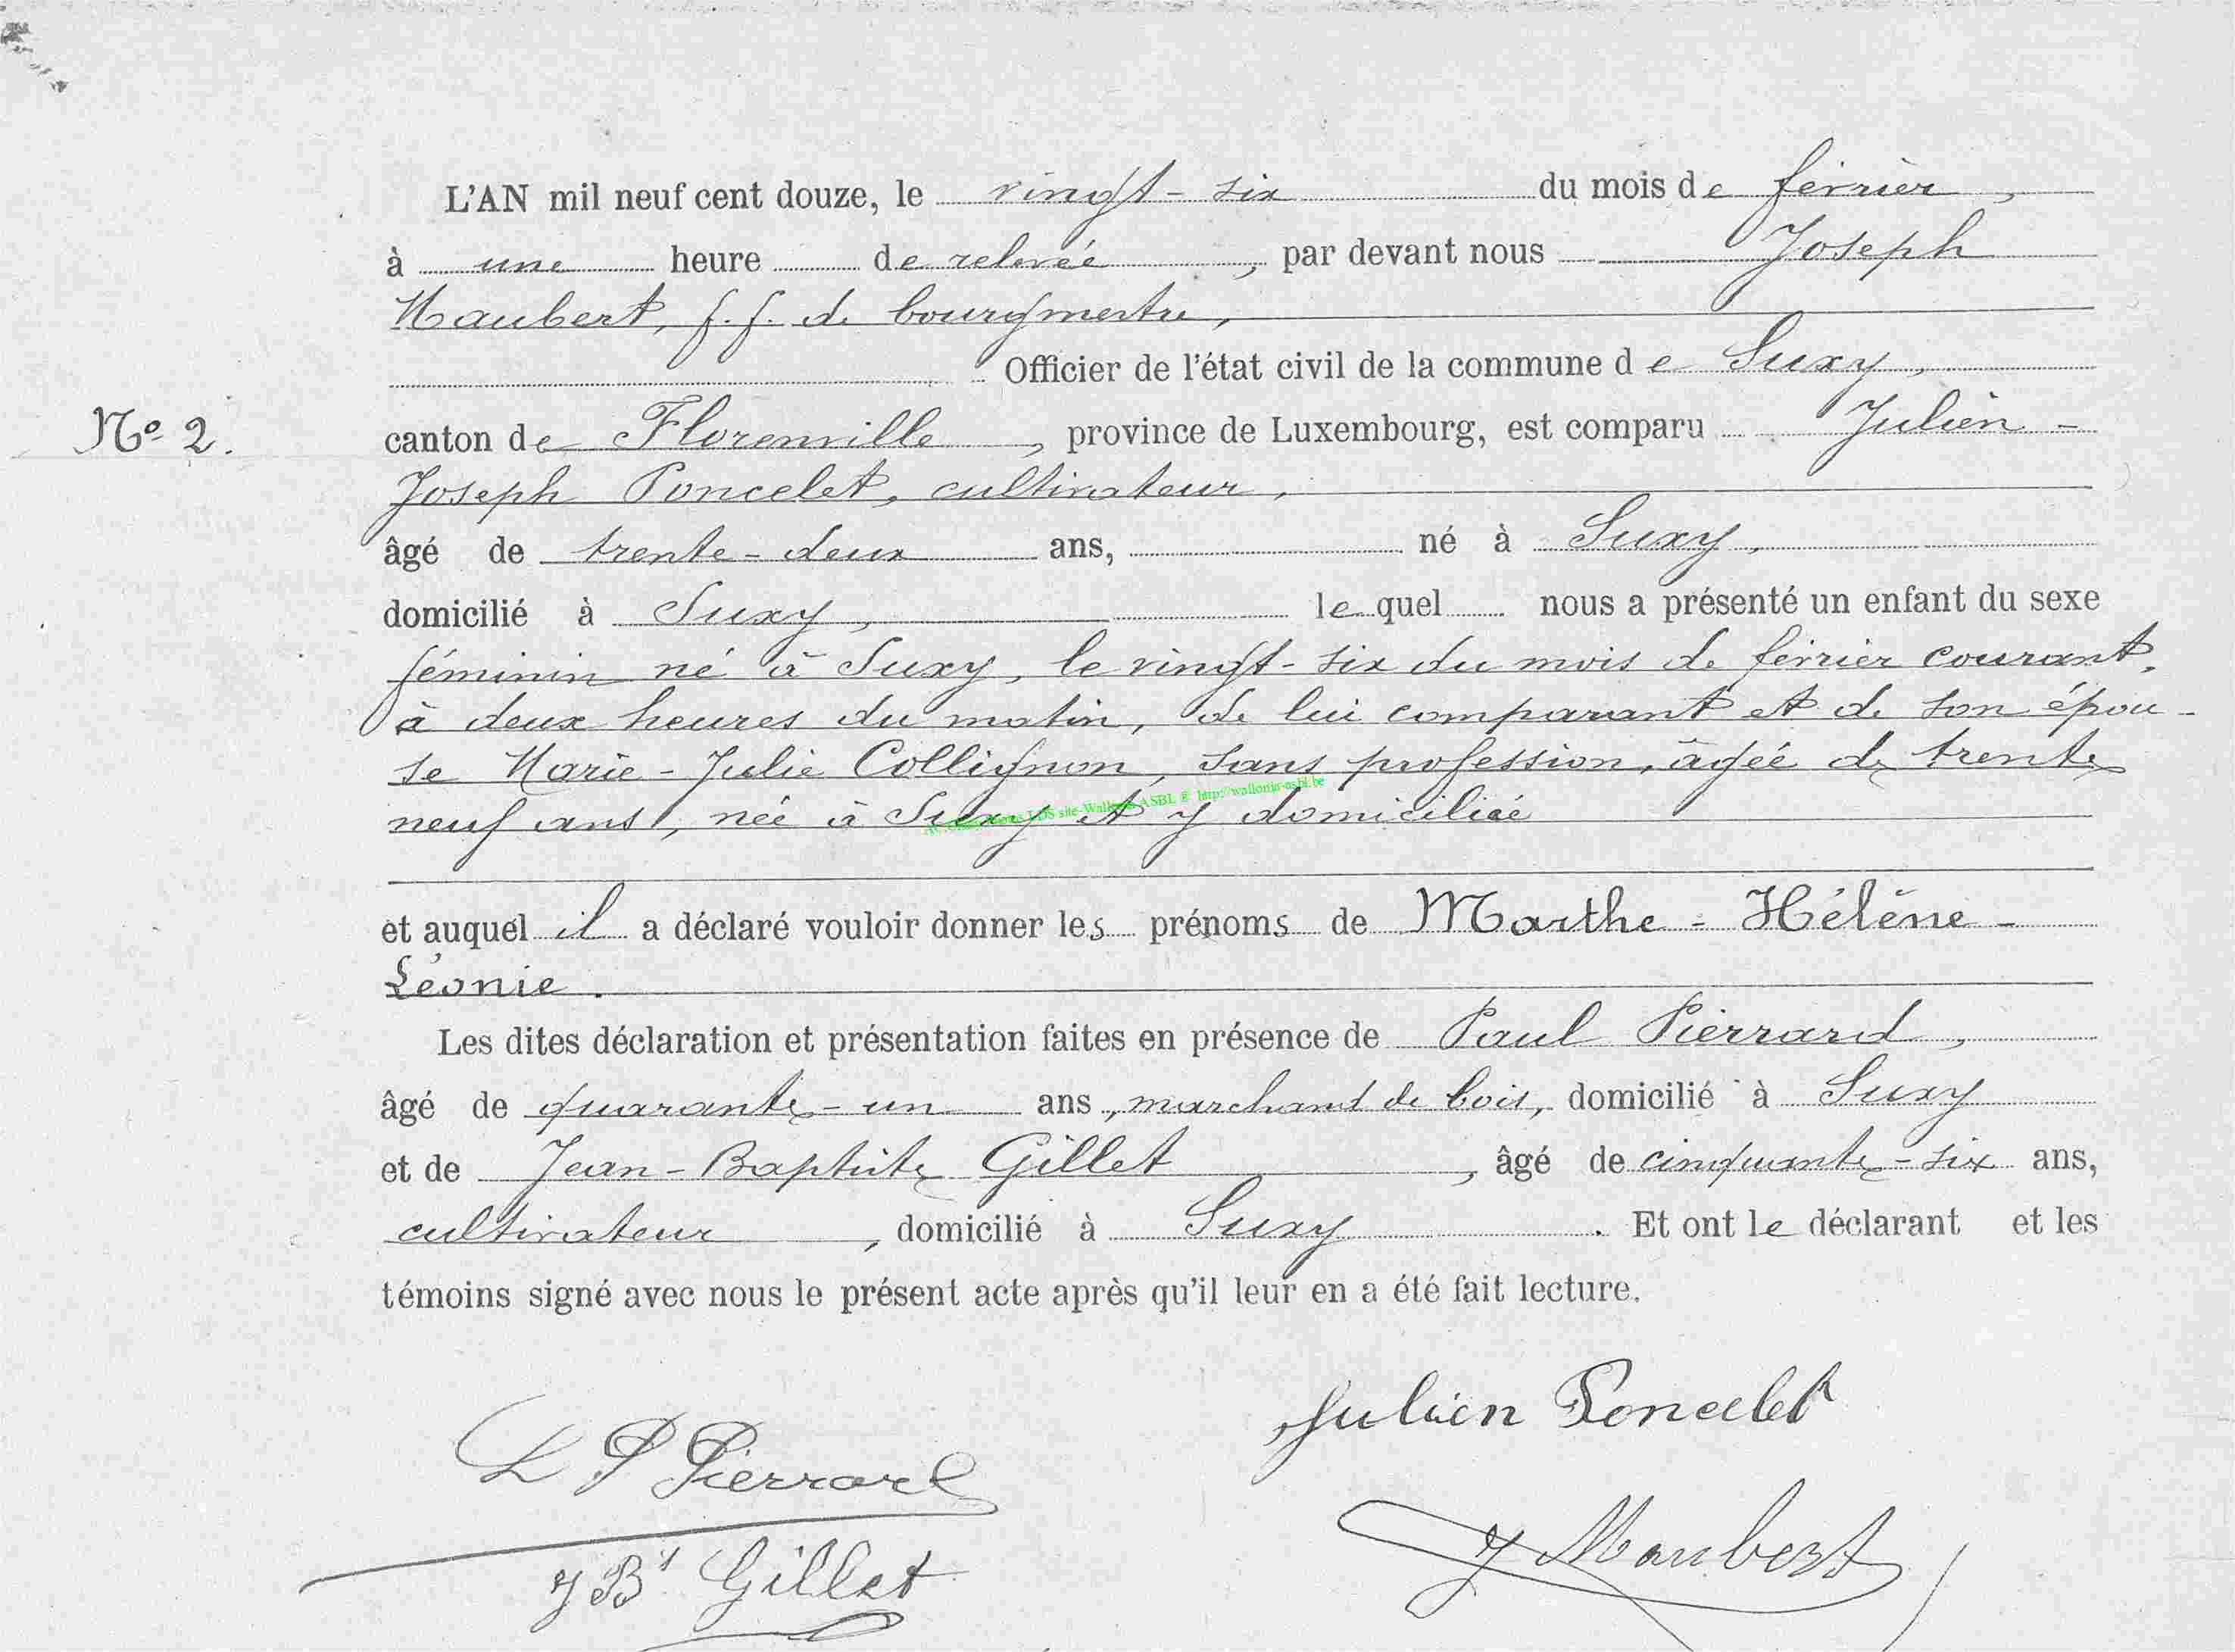 L'AN mil neuf cent douze, le vingt-six du mois de février,
à une heure de relevée, par devant nous Joseph
Maubert, f.f. de bourgmestre,
Officier de l'état civil de la commune de Suxy,
N° 2.
canton de Florenville, province de Luxembourg, est comparu Julien-
Joseph Poncelet, cultivateur,
âgé de trente-deux ans, né à Suxy,
domicilié à Suxy, lequel nous a présenté un enfant du sexe
féminin né à Suxy, le vingt-six du mois de février courant,
à deux heures du matin, de lui comparant et de son épou-
se Marie-Julie Collignon, sans profession, âgée de trente
neuf ans, née à Suxy et y domiciliée
site-Wallonia ASBL © http://wallonia-asbl.be
et auquel il a déclaré vouloir donner les prénoms de Marthe-Hélène-
Léonie.
Les dites déclaration et présentation faites en présence de Paul Pierrard,
âgé de quarante-un ans, marchand de bois, domicilié à Suxy
et de Jean-Baptiste Gillet, âgé de cinquante-six ans,
cultivateur, domicilié à Suxy. Et ont le déclarant et les
témoins signé avec nous le présent acte après qu'il leur en a été fait lecture.
Julien Poncelet
L P Pierrard
J Maubert
J Bt Gillet